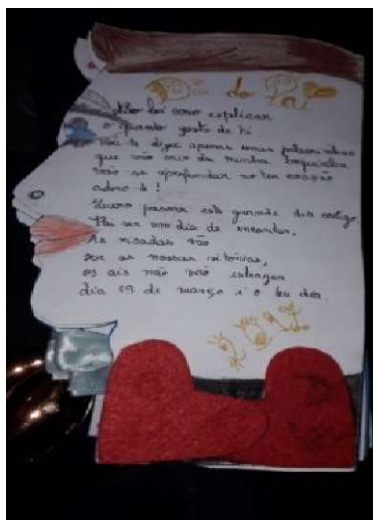 Dia do Pai
Não há como explicar
o quanto gosto de ti
Vou te dizer apenas umas palavrinhas
que vão sair da minha boquinha
vão se aprofundar no teu coração
adoro-te!
Quero passar este grande dia contigo
Vai ser um dia de encantar.
As risadas vão
ser as nossas vitórias,
os ais não vão estragar
dia 19 de março é o teu dia.